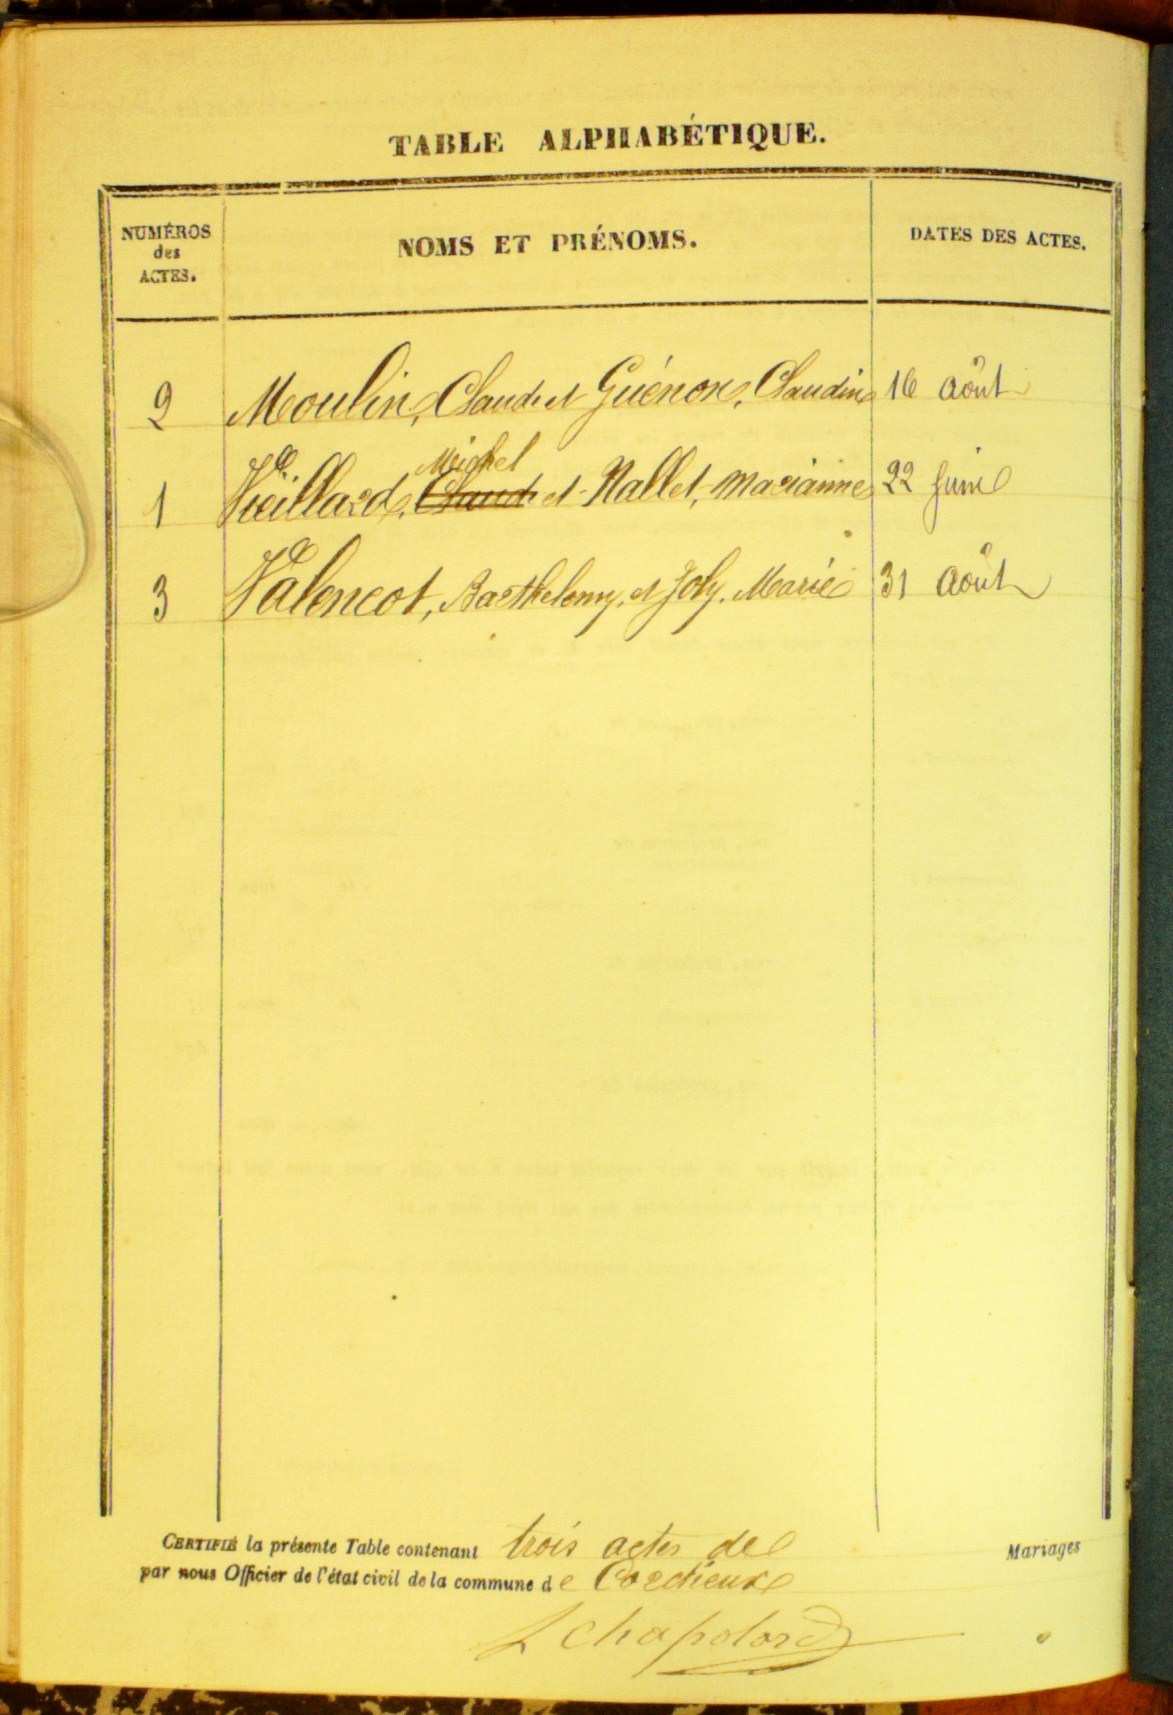 TABLE ALPHABÉTIQUE.
NUMÉROS
des
ACTES.
NOMS ET PRÉNOMS.
DATES DES ACTES.
2 Moulin, Claude et Guénon, Claudine 16 Août
Michel
1 Vieillard, Claude et Nallet, Marianne 22 Juin
3 Valencot, Barthelemy, et Joly, Marie 31 Août
CERTIFIÉ la présente Table contenant trois actes de Mariages
par nous Officier de l'état civil de la commune de Cordieux
L Chapolard